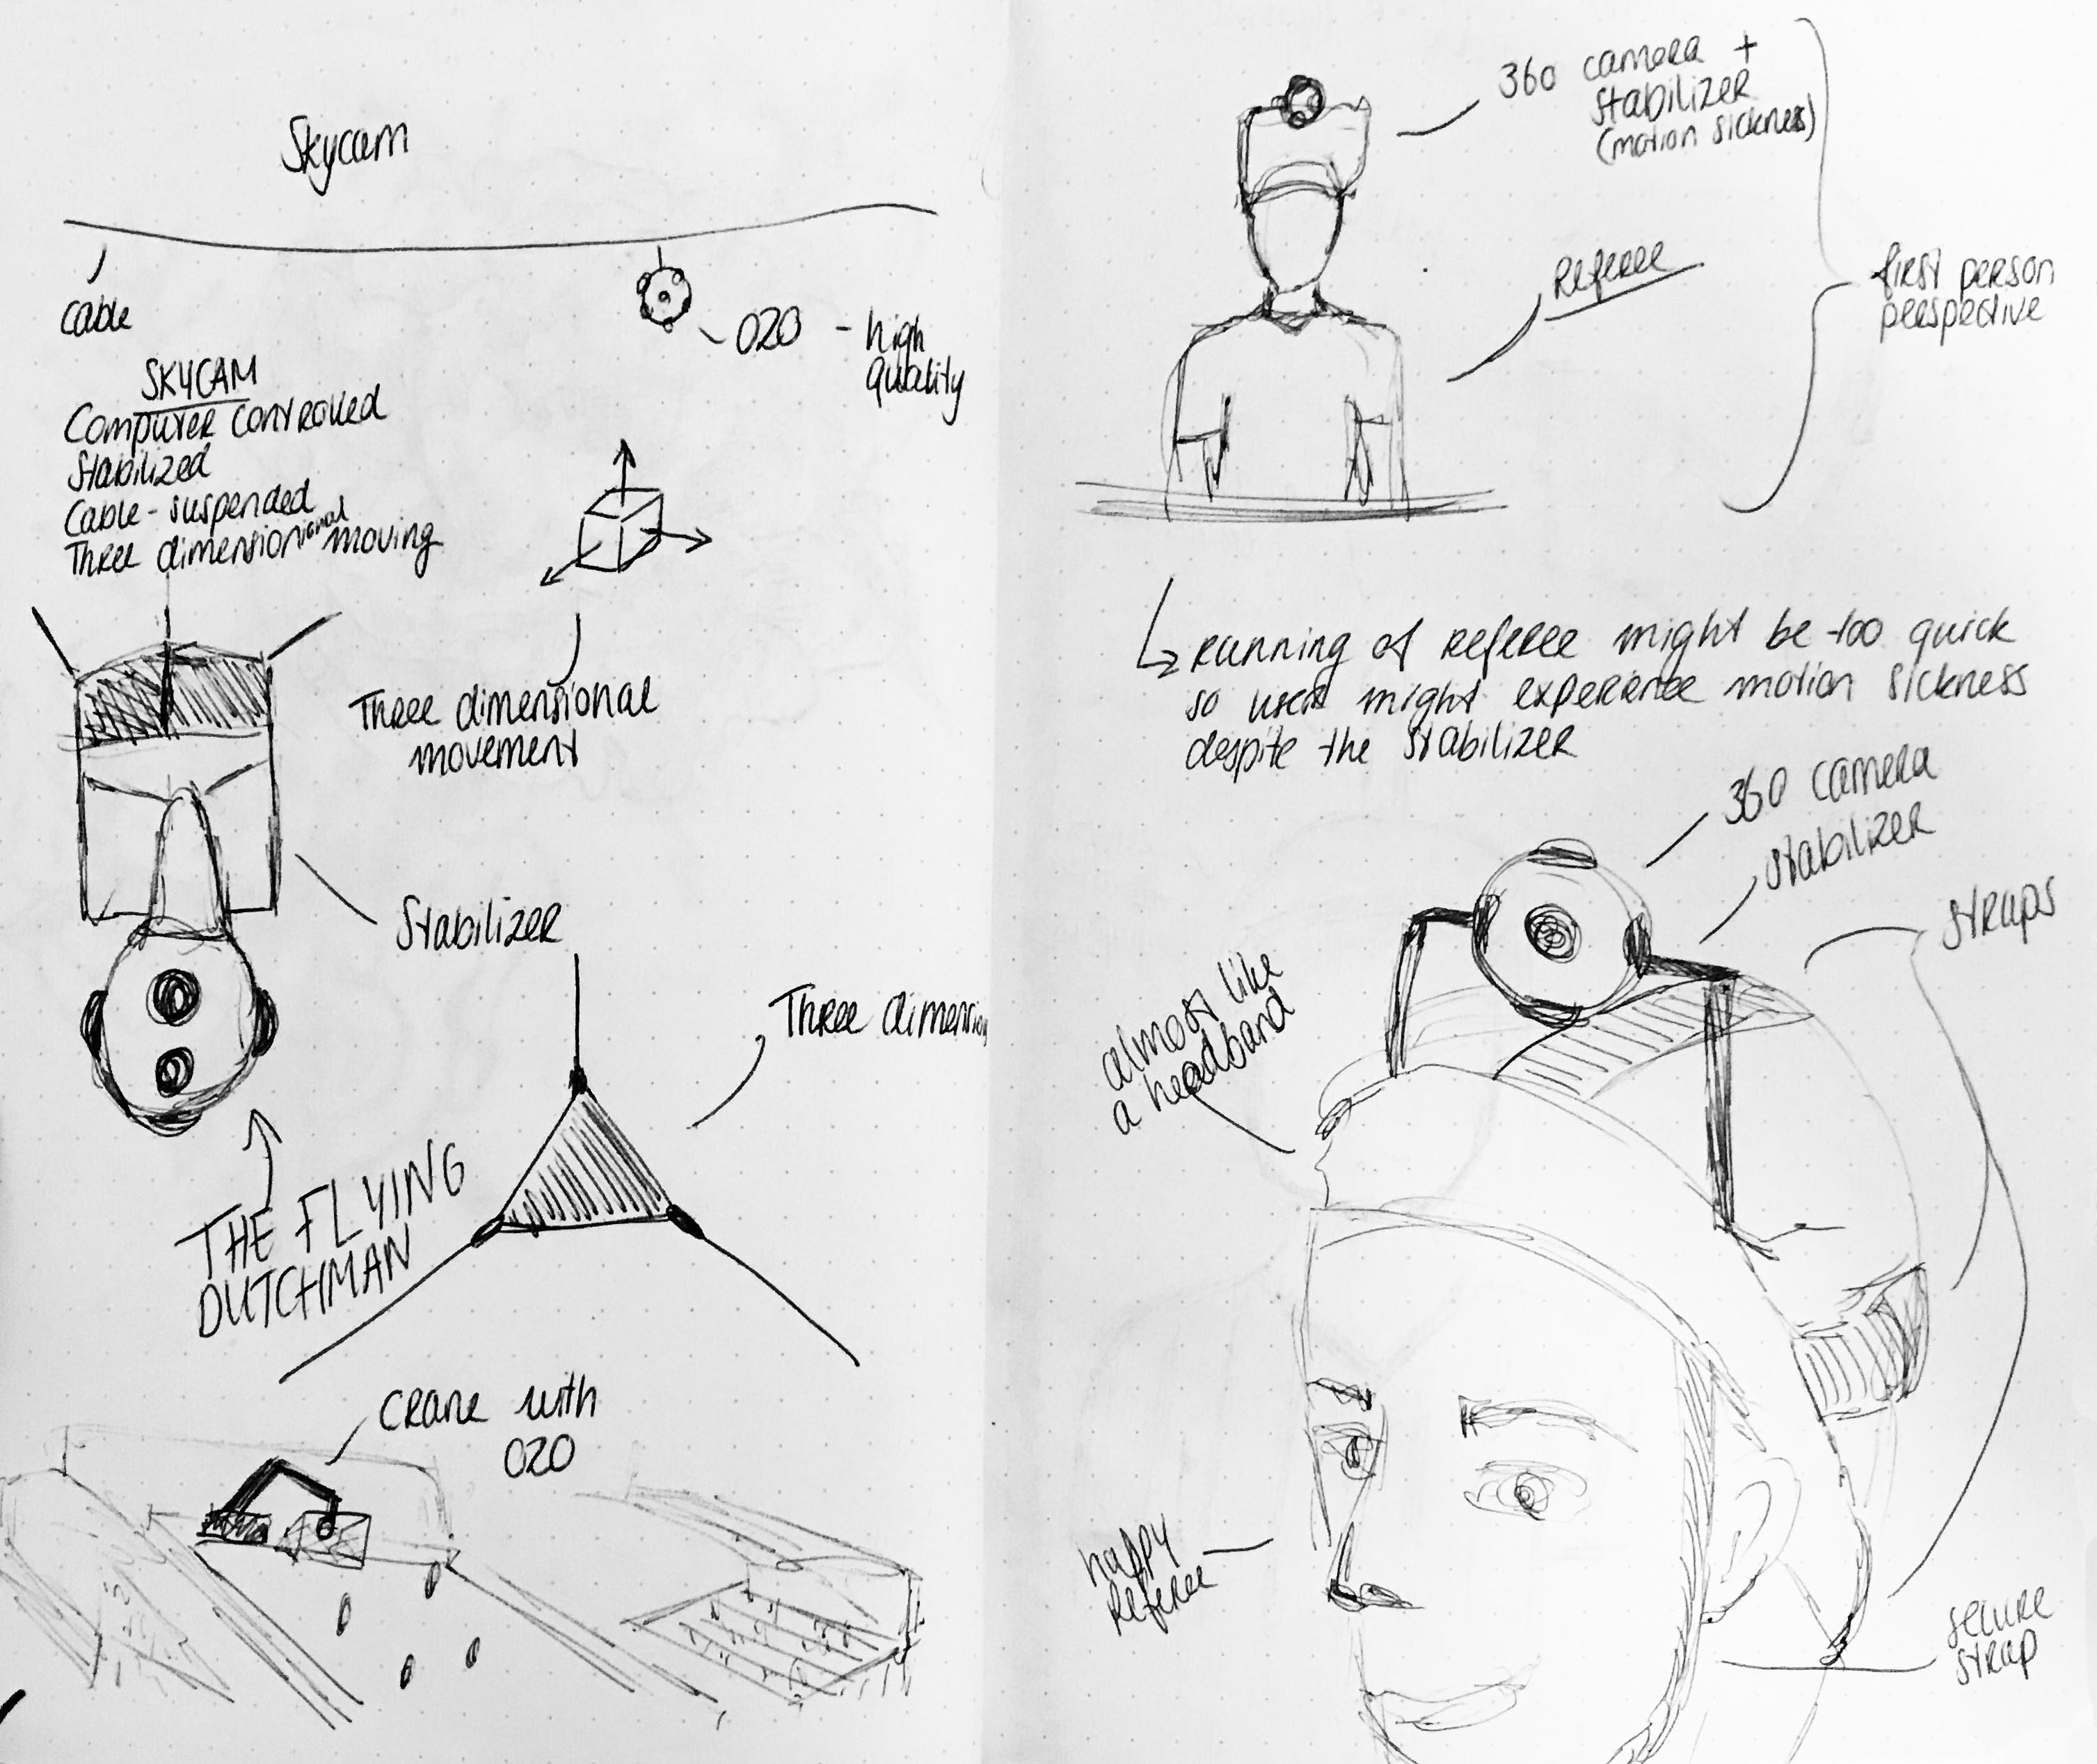 Skycam
cable
OZO - high
quality
SKYCAM
Computer controlled
Stabilized
Cable-suspended
Three dimensional moving
Three dimensional
movement
Stabilizer
Three dimension
THE FLYING
DUTCHMAN
crane with
OZO
360 camera +
stabilizer
(motion sickness)
Referee
first person
perspective
running of referee might be too quick
so users might experience motion sickness
despite the stabilizer
360 camera
stabilizer
straps
almost like
a headband
happy
referee
secure
strap